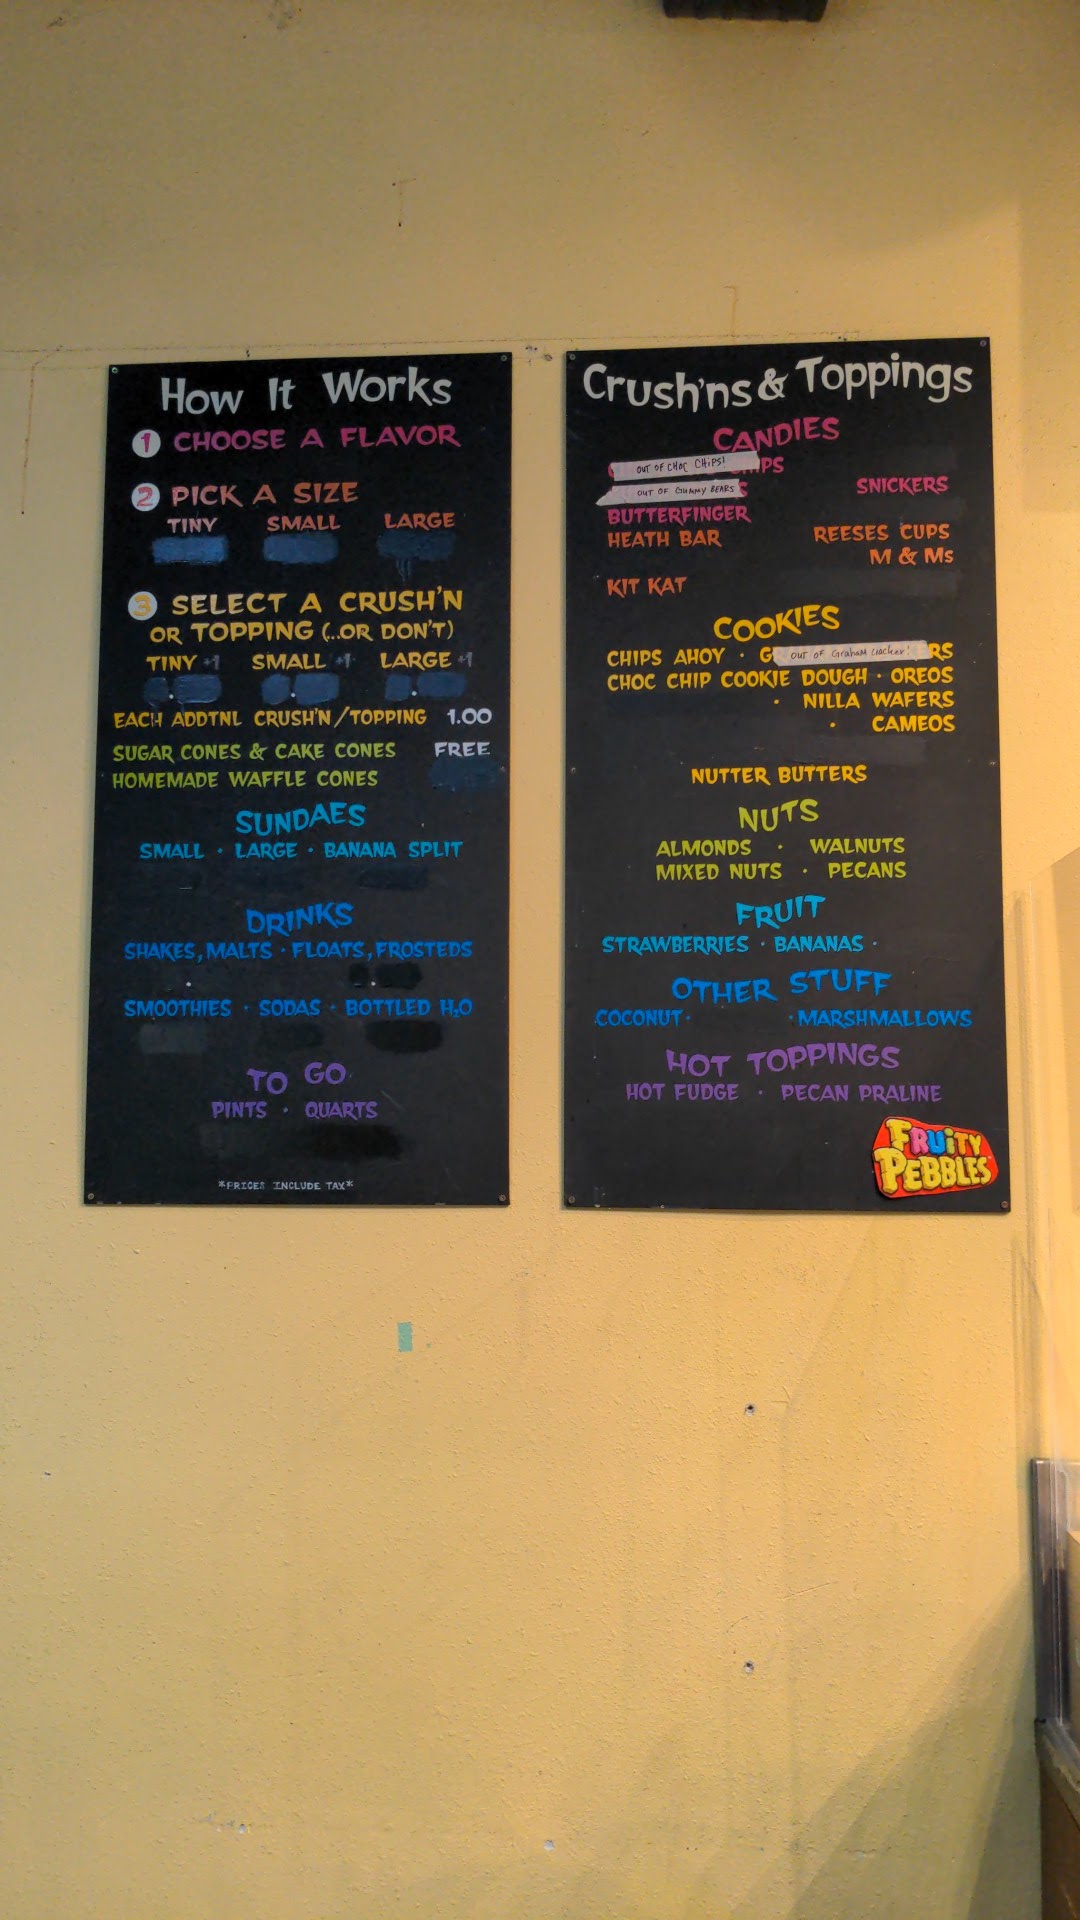 How It Works
1 CHOOSE A FLAVOR
2 PICK A SIZE
TINY SMALL LARGE
3 SELECT A CRUSH'N
OR TOPPING (...OR DON'T)
TINY +1 SMALL +1 LARGE +1
EACH ADDTNL CRUSH'N/TOPPING 1.00
SUGAR CONES & CAKE CONES FREE
HOMEMADE WAFFLE CONES
SUNDAES
SMALL · LARGE · BANANA SPLIT
DRINKS
SHAKES, MALTS · FLOATS, FROSTEDS
SMOOTHIES · SODAS · BOTTLED H₂O
TO GO
PINTS · QUARTS
*PRICES INCLUDE TAX*
Crush'ns & Toppings
CANDIES
OUT OF CHOC CHIPS!
OUT OF GUMMY BEARS
SNICKERS
BUTTERFINGER
HEATH BAR REESES CUPS
M & Ms
KIT KAT
COOKIES
CHIPS AHOY · OUT OF Graham Cracker!
CHOC CHIP COOKIE DOUGH · OREOS
· NILLA WAFERS
· CAMEOS
NUTTER BUTTERS
NUTS
ALMONDS · WALNUTS
MIXED NUTS · PECANS
FRUIT
STRAWBERRIES · BANANAS ·
OTHER STUFF
COCONUT · · MARSHMALLOWS
HOT TOPPINGS
HOT FUDGE · PECAN PRALINE
FRUITY
PEBBLES